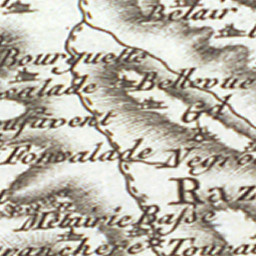 Belair
Bourquette
Bellevue
valade
Gd
Fonvalade Negro
Raz
Métairie Basse
anchere Tourau